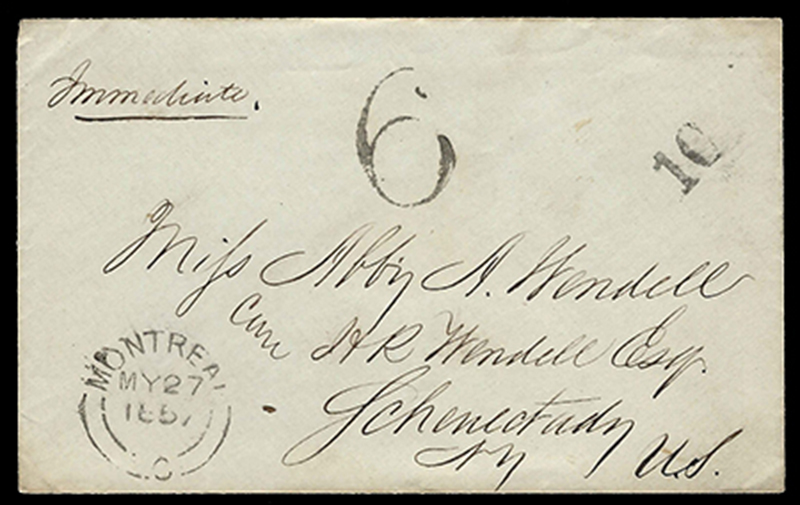 Immediate.
6
10
Miss Abby A. Wendell
Care H R Wendell Esq.
Schenectady
NY U.S.
MONTREAL
MY 27
1857
C